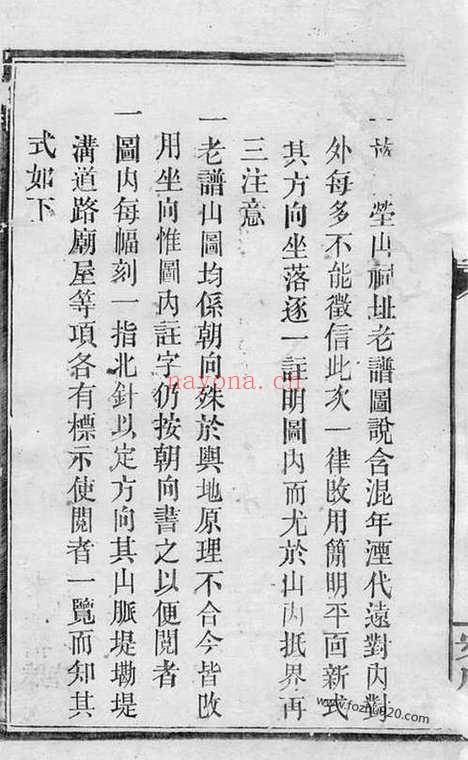 一族 塋山祠址老譜圖說含混年湮代遠對內對
外每多不能徵信此次一律改用簡明平面新式
其方向坐落逐一註明圖內而尤於山內抵界再
三注意
一老譜山圖均係朝向殊於輿地原理不合今皆改
用坐向惟圖內註字仍按朝向書之以便閱者
一圖內每幅刻一指北針以定方向其山脈堤壋堤
溝道路廟屋等項各有標示使閱者一覽而知其
式如下
nayona.cn
www.fozhu920.com